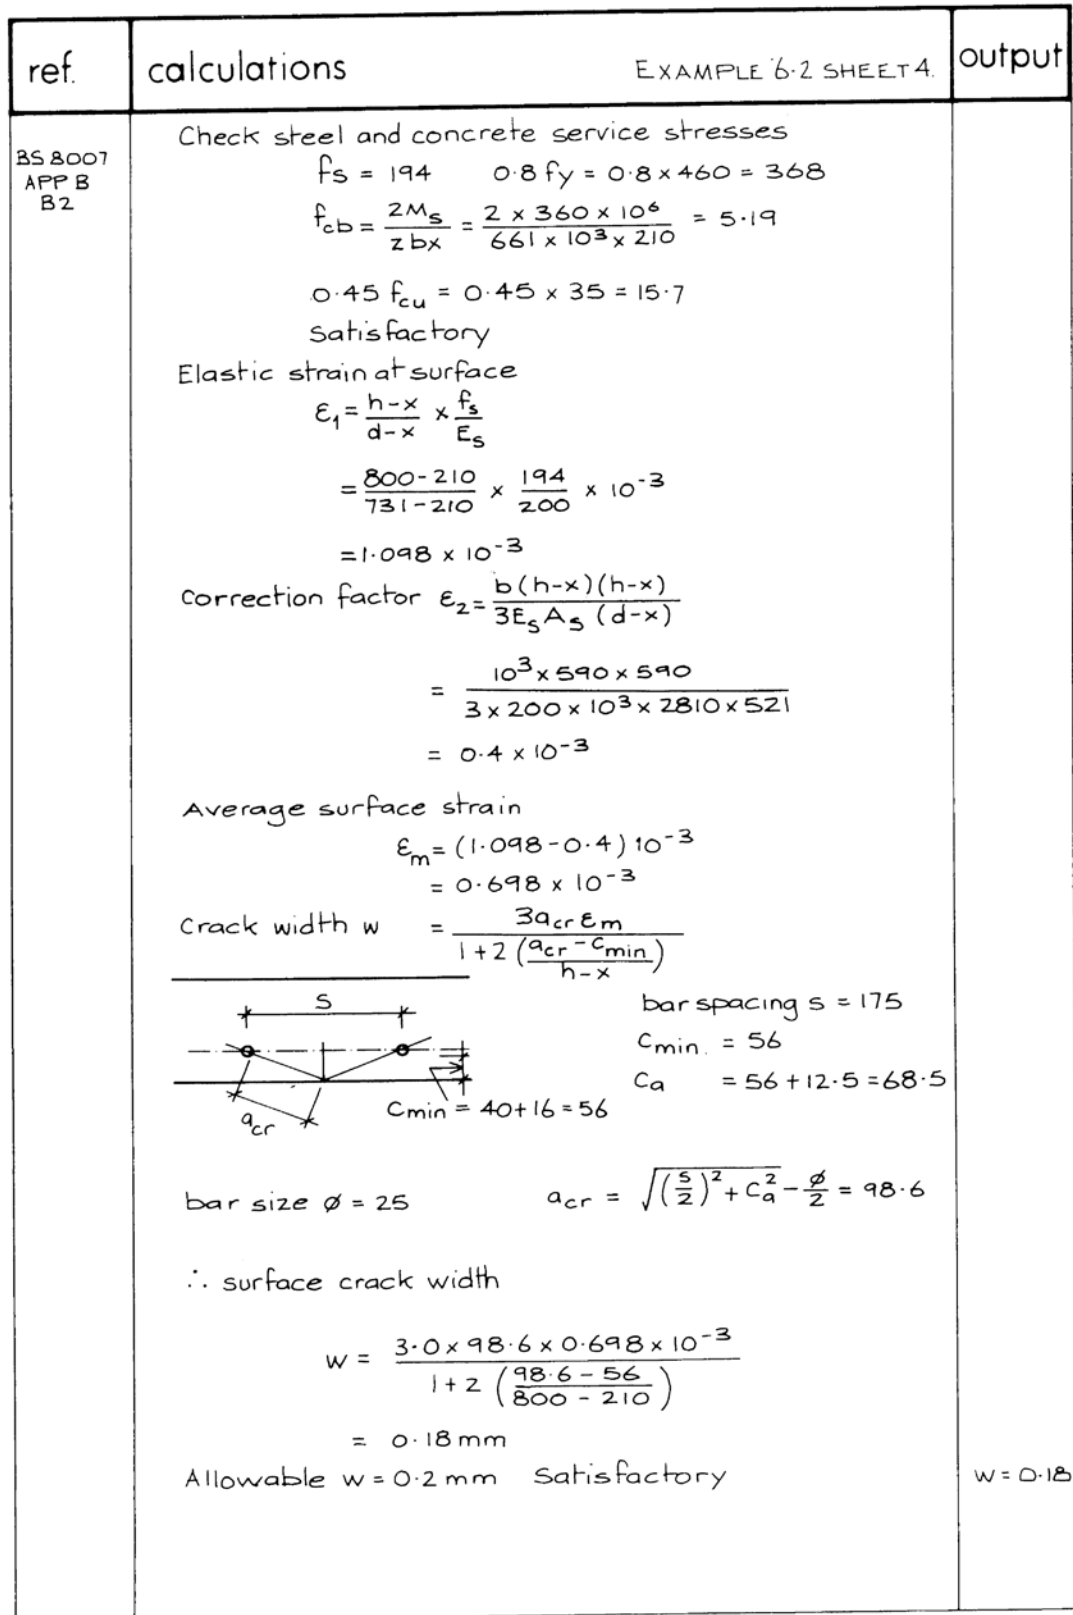 ref. calculations EXAMPLE 6·2 SHEET 4. output
BS 8007
APP B
B2
Check steel and concrete service stresses
fs = 194 0·8 fy = 0·8 × 460 = 368
fcb = 2Ms / z bx = 2 × 360 × 10⁶ / 661 × 10³ × 210 = 5·19
0·45 fcu = 0·45 × 35 = 15·7
Satisfactory
Elastic strain at surface
ε₁ = h-x / d-x × fs / Es
= 800-210 / 731-210 × 194 / 200 × 10⁻³
= 1·098 × 10⁻³
Correction factor ε₂ = b(h-x)(h-x) / 3EsAs (d-x)
= 10³ × 590 × 590 / 3 × 200 × 10³ × 2810 × 521
= 0·4 × 10⁻³
Average surface strain
εm = (1·098 - 0·4) 10⁻³
= 0·698 × 10⁻³
Crack width w = 3acr εm / 1 + 2 (acr - cmin / h-x)
S
bar spacing s = 175
Cmin. = 56
Ca = 56 + 12·5 = 68·5
acr
Cmin = 40 + 16 = 56
bar size ø = 25 acr = √((s/2)² + Ca²) - ø/2 = 98·6
∴ surface crack width
w = 3·0 × 98·6 × 0·698 × 10⁻³ / 1 + 2 (98·6 - 56 / 800 - 210)
= 0·18 mm
Allowable w = 0·2 mm Satisfactory w = 0·18